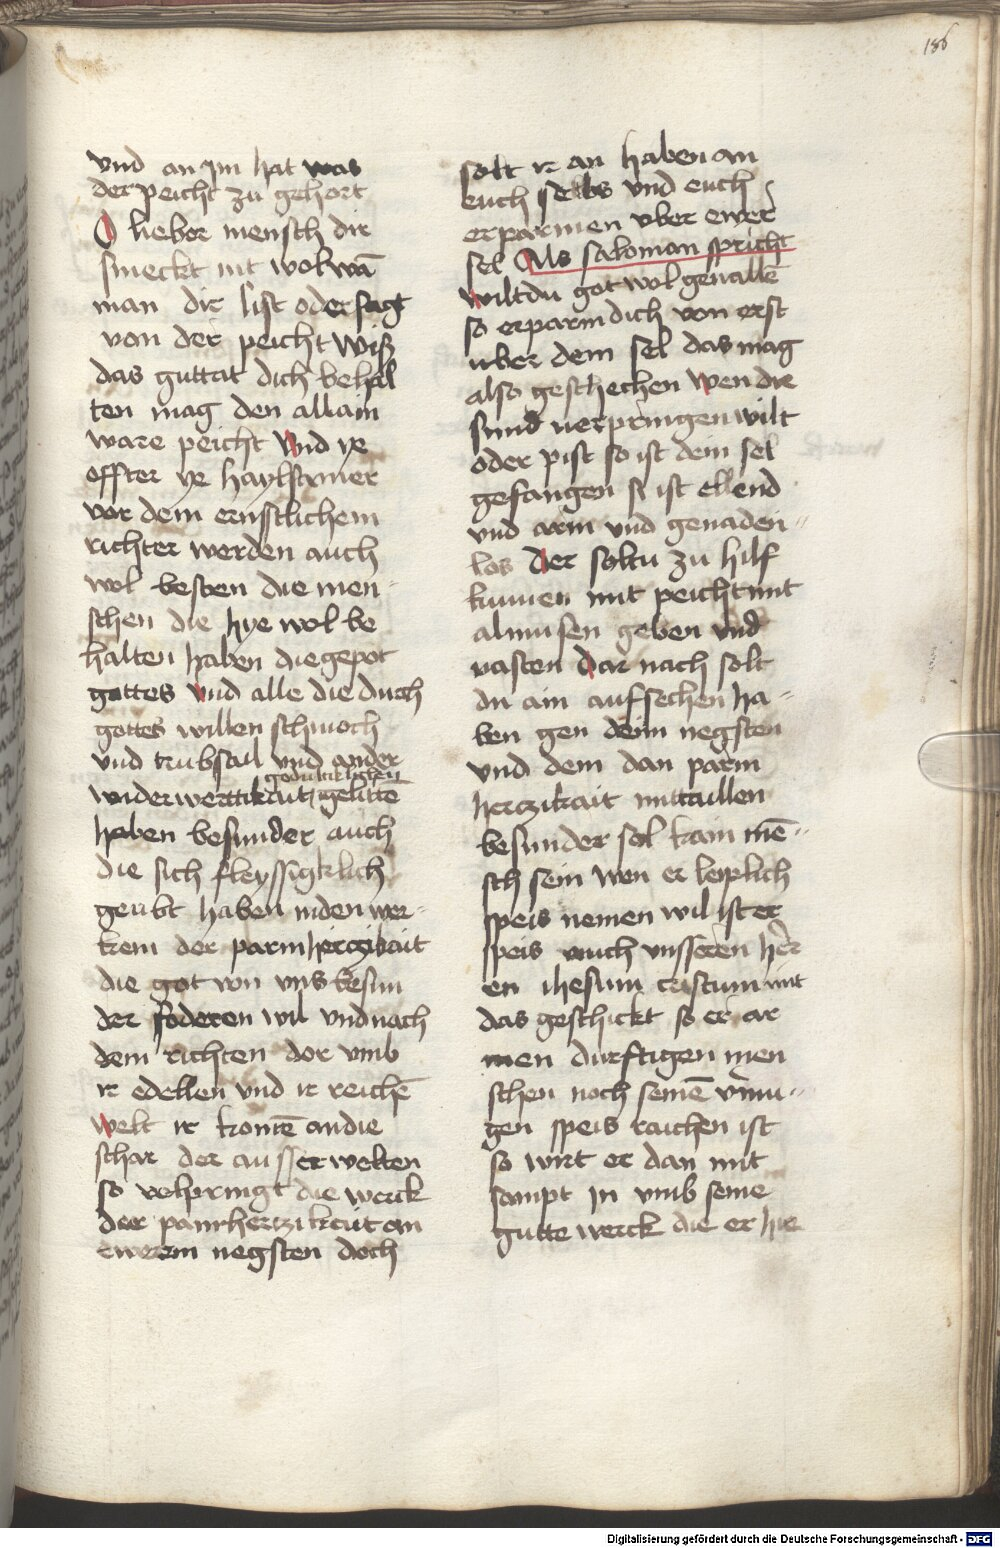 186
vnd an Jm hat was
der peicht zu gehort
O lieber mensch dir
smeckt nit wol wā
man dir list oder sagt
von der peicht Wiß
das guttat dich behal
ten mag den allain
ware peicht Vnd ye
offter ye haylsamer
vor dem ernstlichem
richter werden auch
wol besten die men-
schen die hye wol be
halten haben die gepot
gottes vnd alle die durch
gottes willen schmoch
vnd trubsal vnd ander
gedultigklichen
widerwerttikait gelittē
haben besunder auch
die sich fleyssigklich
geubt haben in den wer-
kem der parmhertzikait
die got von vns besun
der foderen wil vnd nach
dem richten dor vmb
ir edellen vnd ir reichē
welt ir komē an die
schar der ausserwelten
so volpringt die werck
der parmhertzikait an
ewerem negsten doch
solt ir an haben an
euch selbs vnd euch
erparmen vber ewer
sel Als saloman spricht
wiltdu got wol geuallē
so erparm dich von erst
uber dem sel das mag
also geschechen wen die
sund verpringen wilt
oder pist so ist dein sel
gefangen si ist ellend
vnd arm vnd genaden-
los Der soltu zu hilf
kumen mit peicht mit
almusen geben vnd
vasten Dar nach solt
du ain aufsechen ha-
ben gen deim negsten
vnd dem dan parm
herczikait mittaillen
besunder sol kain mē-
sch sein wen er leiplich
speis nemen wil ist er
speis auch vnsseren her
en ihesum cristum mit
das geschickt so er ar
men durftigen men
schen noch seinē vmu-
gen speis raichen ist
so wirt er dan mit
sampt in vmb seine
gutte werck die er hie
Digitalisierung gefördert durch die Deutsche Forschungsgemeinschaft - DFG